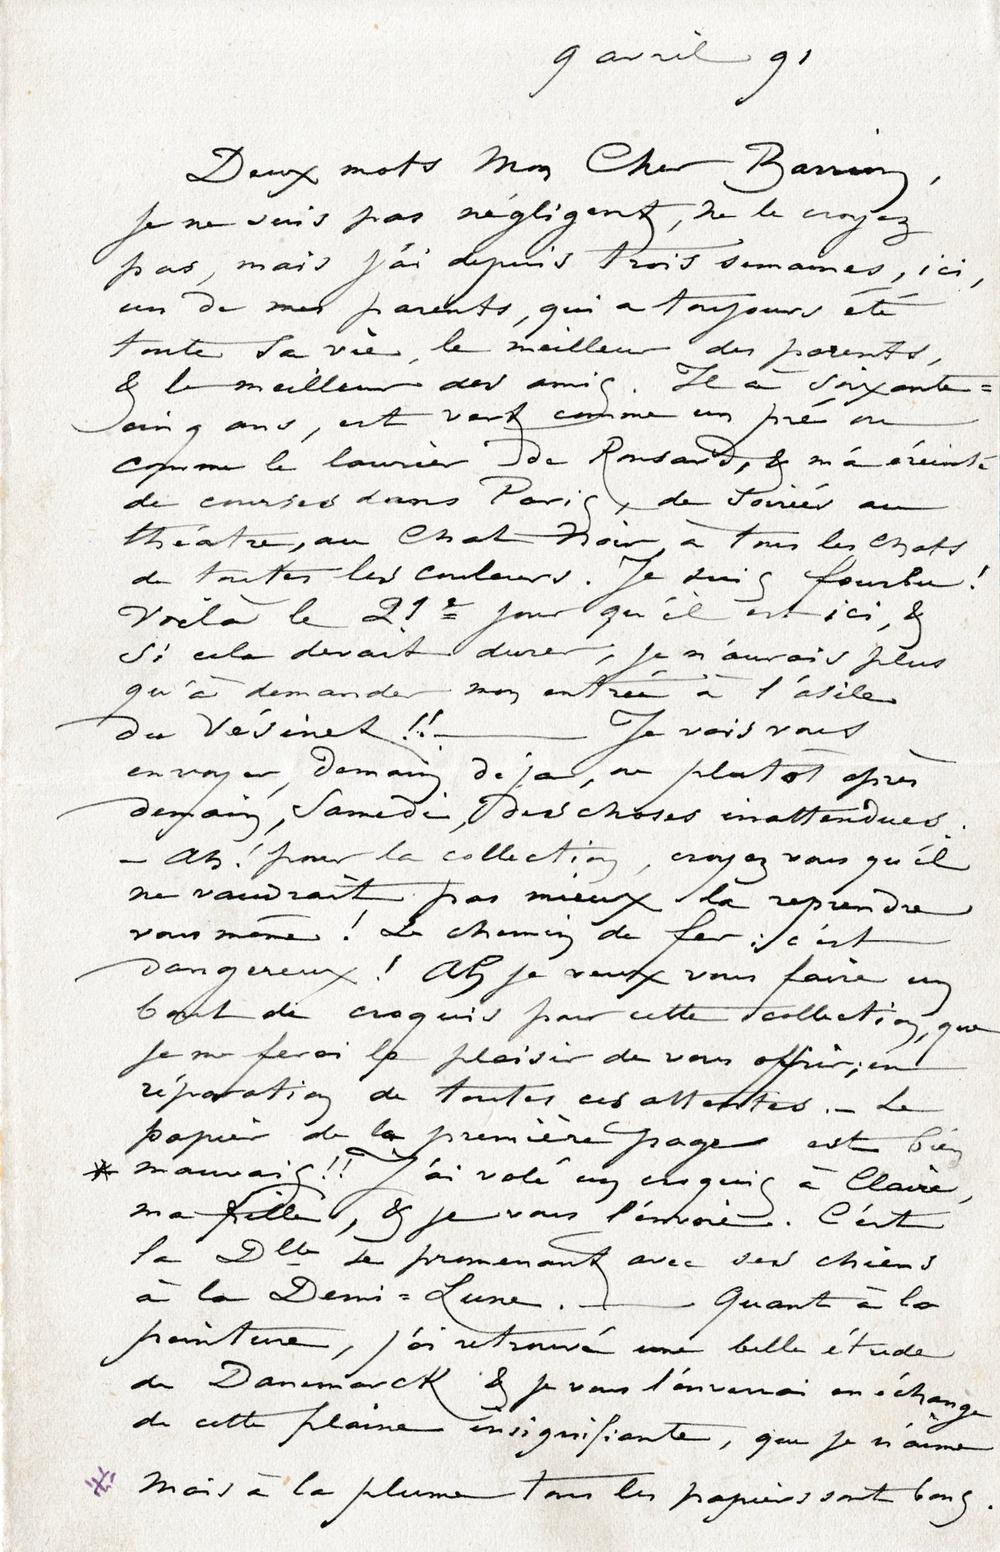 9 avril 91
Deux mots Mon Cher Barrion,
je ne suis pas négligent, ne le croyez
pas, mais j'ai depuis trois semaines, ici,
un de mes parents, qui a toujours été
toute sa vie, le meilleur des parents,
& le meilleur des amis. Il a soixante=
cinq ans, est vert comme un pré ou
comme le laurier de Ronsard, & m'a éreinté
de courses dans Paris, de soirées au
théatre, au Chat Noir, à tous les chats
de toutes les couleurs. Je suis fourbu!
Voilà le 21e jour qu'il est ici, &
si cela devait durer, je n'aurais plus
qu'à demander mon entrée à l'asile
du Vésinet!! — Je vais vous
envoyer, demain déjà, ou plutôt après
demain, Samedi, des choses inattendues.
– Ah! pour la collection, croyez vous qu'il
ne vaudrait pas mieux la reprendre
vous même! Le chemin de fer: c'est
dangereux! Ah je veux vous faire un
bout de croquis pour cette collection, que
je me ferai le plaisir de vous offrir, en
réparation de toutes ces attentes. – Le
papier de la première page est bien
* mauvais!! J'ai volé un croquis à Claire,
ma fille, & je vous l'envoie. C'est
la Dlle se promenant avec ses chiens
à la Demi=Lune. — Quant à la
peinture, j'ai retrouvé une belle étude
de Danemarck & je vous l'enverrai en échange
de cette plaine insignifiante, que je n'aime
* Mais à la plume tous les papiers sont bons.